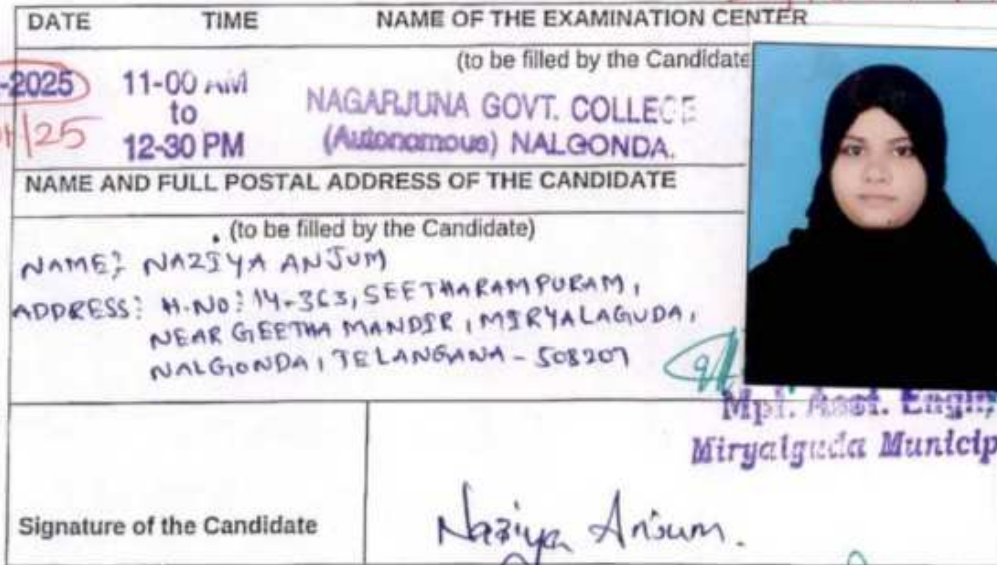 DATE TIME NAME OF THE EXAMINATION CENTER
(to be filled by the Candidate
-2025 11-00 AM
to
12-30 PM
NAGARJUNA GOVT. COLLEGE
(Autonomous) NALGONDA.
/25
NAME AND FULL POSTAL ADDRESS OF THE CANDIDATE
(to be filled by the Candidate)
NAME: NAZIYA ANJUM
ADDRESS: H.NO: 14-363, SEETHARAMPURAM,
NEAR GEETHA MANDIR, MIRYALAGUDA,
NALGONDA, TELANGANA - 508207
Mpl. Asst. Engin
Miryalguda Municip
Signature of the Candidate Naziya Anjum.